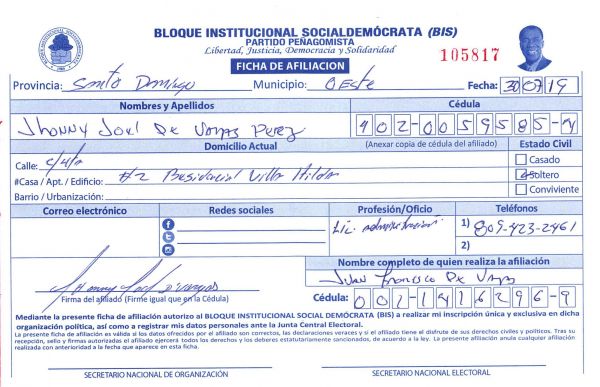 BLOQUE INSTITUCIONAL SOCIALDEMÓCRATA (BIS)
PARTIDO PEÑAGOMISTA
Libertad, Justicia, Democracia y Solidaridad
105817
FICHA DE AFILIACION
Provincia: Santo Domingo Municipio: Oeste Fecha: 30/07/19
Nombres y Apellidos Cédula
Jhonny Joel De Vargas Perez 402-0059585-
Domicilio Actual (Anexar copia de cédula del afiliado) Estado Civil
Calle: C/4ta Casado
#Casa / Apt. / Edificio: #2 Residencial Villa Hilda Soltero
Barrio / Urbanización: Conviviente
Correo electrónico Redes sociales Profesión/Oficio Teléfonos
Lic. administración 1) 809-423-2461
2)
Nombre completo de quien realiza la afiliación
Juan Francisco De Vargas
Firma del afiliado (Firme igual que en la Cédula) Cédula: 001-1416296-9
Mediante la presente ficha de afiliación autorizo al BLOQUE INSTITUCIONAL SOCIAL DEMÓCRATA (BIS) a realizar mi inscripción única y exclusiva en dicha
organización política, así como a registrar mis datos personales ante la Junta Central Electoral.
La presente ficha de afiliación es válida si los datos ofrecidos por el afiliado son correctos, las declaraciones veraces y si el afiliado tiene el disfrute de sus derechos civiles y políticos. Tras su
recepción, sello y firmas autorizadas el afiliado ejercerá todos los derechos y los deberes estatutariamente sancionados, de acuerdo a la ley. La presente afiliación anula cualquier afiliación
realizada con anterioridad a la fecha que aparece en esta ficha.
SECRETARIO NACIONAL DE ORGANIZACIÓN SECRETARIO NACIONAL ELECTORAL